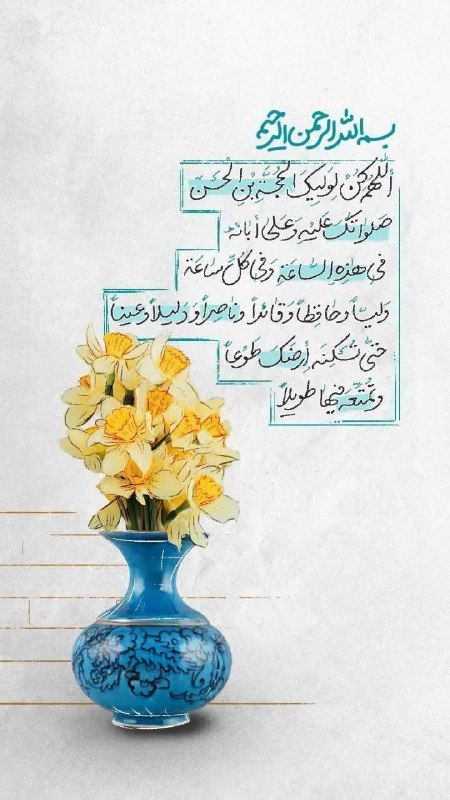 بسم الله الرحمن الرحیم
أللّٰهُمَّ كُنْ لِوَلِيِّكَ الحُجَّةِ بْنِ الْحَسَنِ
صَلَواتُكَ عَلَيْهِ وَعَلىٰ أبائه
في هٰذِهِ السّاعَةِ وَفي كُلِّ ساعَة
وَلياً وَحافِظاً وَقائداً وناصِراً وَدَليلاً وَعيناً
حَتّىٰ تُسْكِنَه أرضَكَ طَوعاً
وتُمَتِّعَه فيها طَويلاً